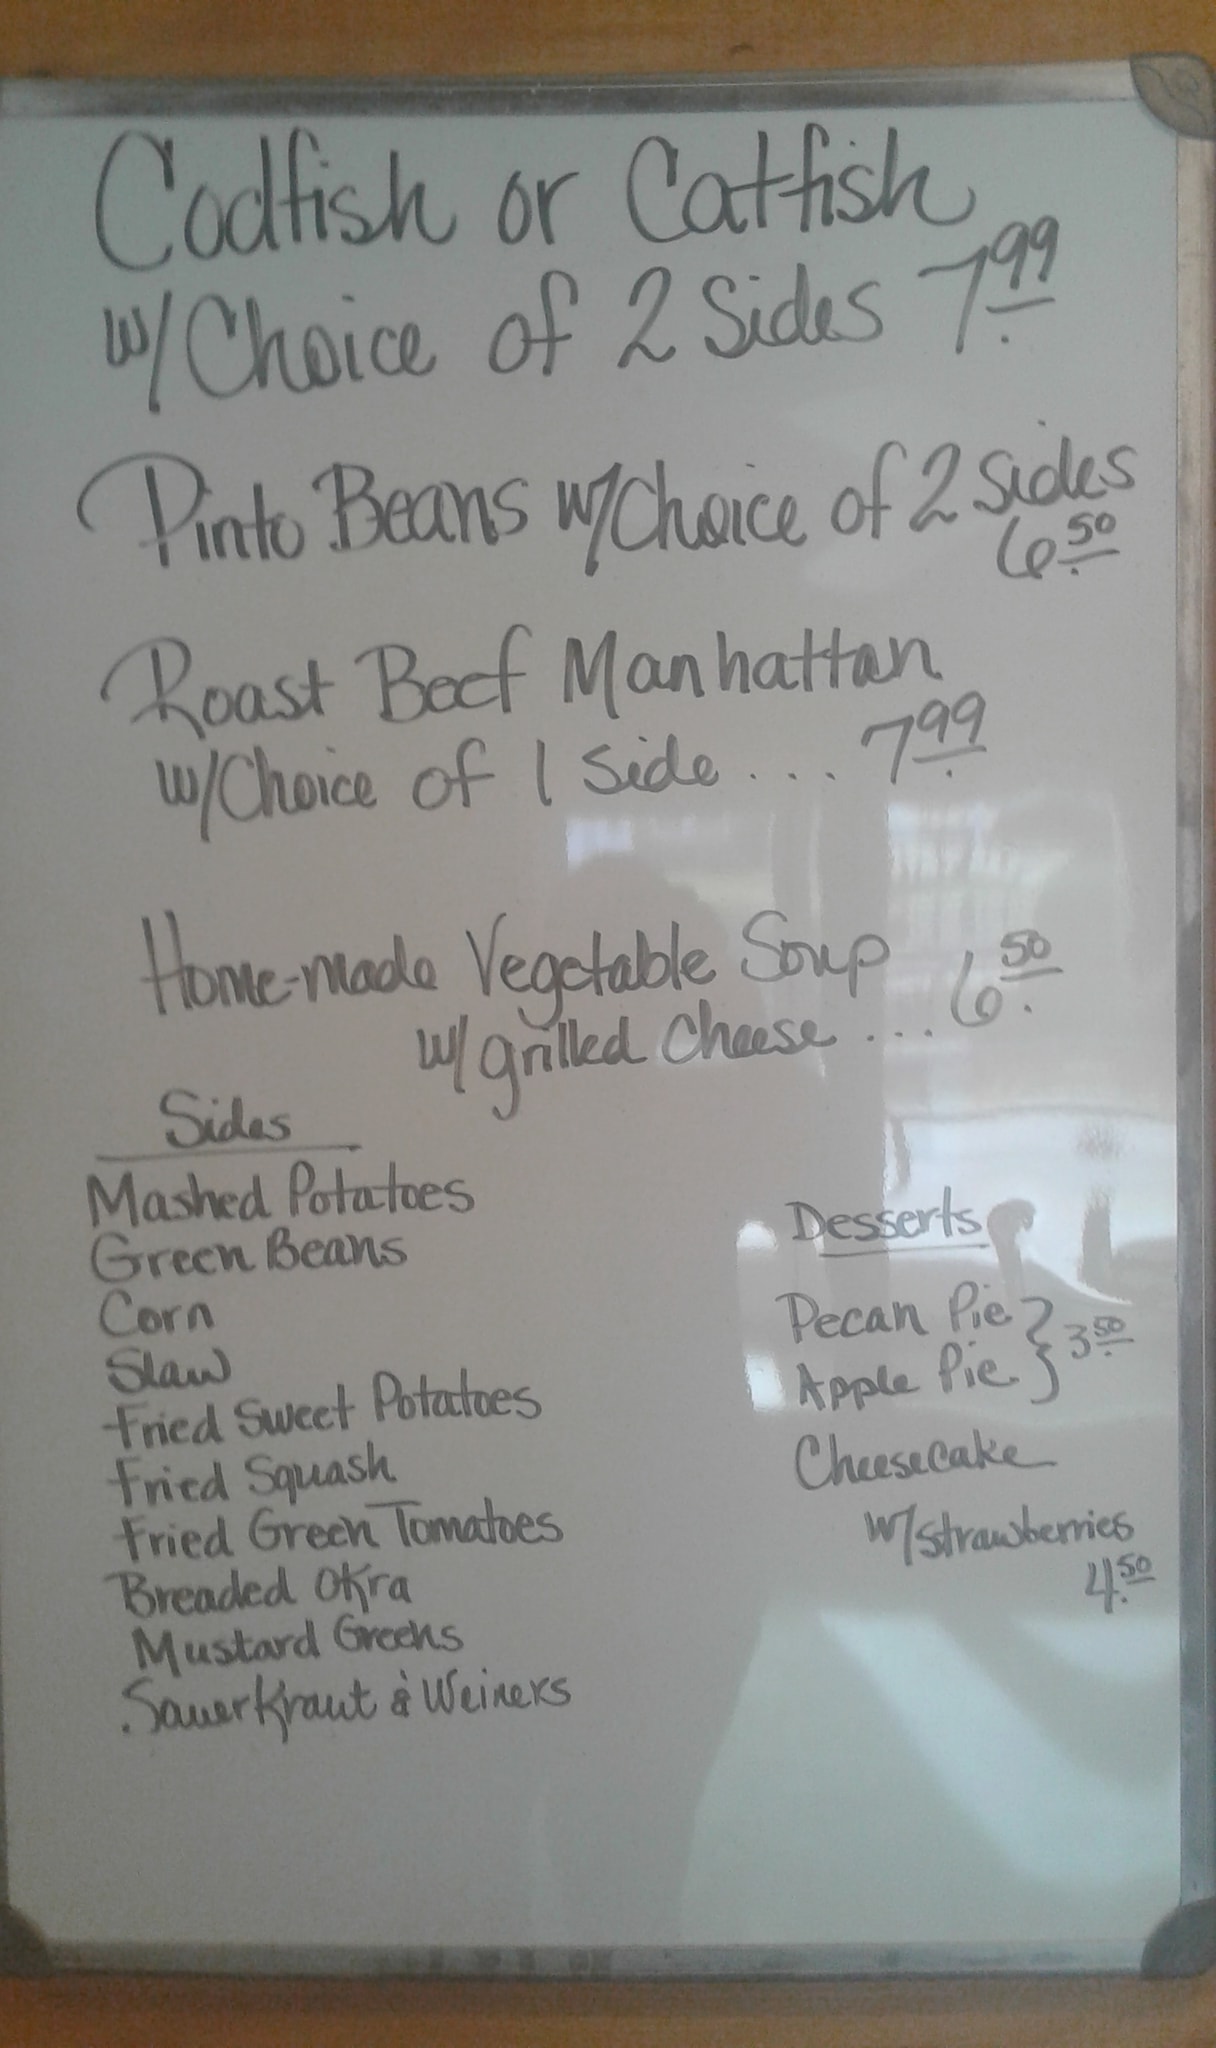 Codfish or Catfish
w/Choice of 2 Sides 7.99
Pinto Beans w/Choice of 2 sides
6.50
Roast Beef Manhattan
w/Choice of 1 side .... 7.99
Home-made Vegetable Soup
w/grilled Cheese .... 6.50
Sides
Mashed Potatoes
Green Beans
Corn
Slaw
Fried Sweet Potatoes
Fried Squash
Fried Green Tomatoes
Breaded Okra
Mustard Greens
Sauerkraut & Weiners
Desserts
Pecan Pie } 3.50
Apple Pie
Cheesecake
w/strawberries
4.50